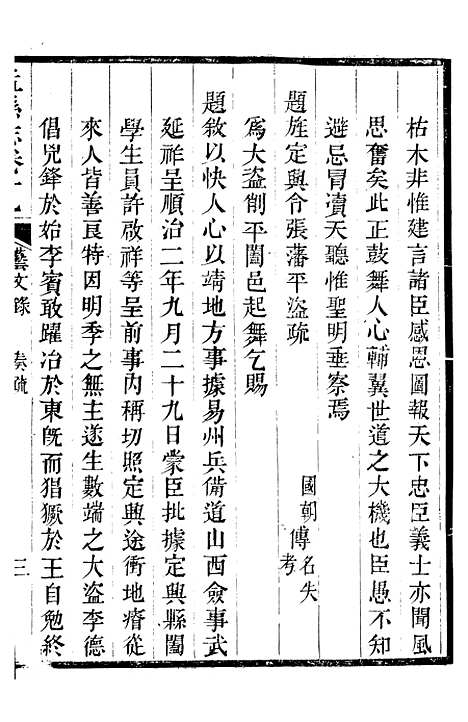 枯木非惟建言諸臣感恩圖報天下忠臣義士亦聞風
思奮矣此正鼓舞人心輔翼世道之大機也臣愚不知
避忌冒瀆天聽惟聖明垂察焉
題旌定興令張藩平盜疏 國朝 名失傳考
爲大盜削平闔邑起舞乞賜
題敘以快人心以靖地方事據易州兵備道山西僉事武
延祥呈順治二年九月二十九日蒙臣批據定興縣闔
學生員許啟祥等呈前事內稱切照定興途衝地瘠從
來人皆善良特因明季之無主遂生數端之大盜李德
倡兇鋒於始李賓敢躍冶於東旣而猖獗於王自勉終
藝文錄 奏疏 三